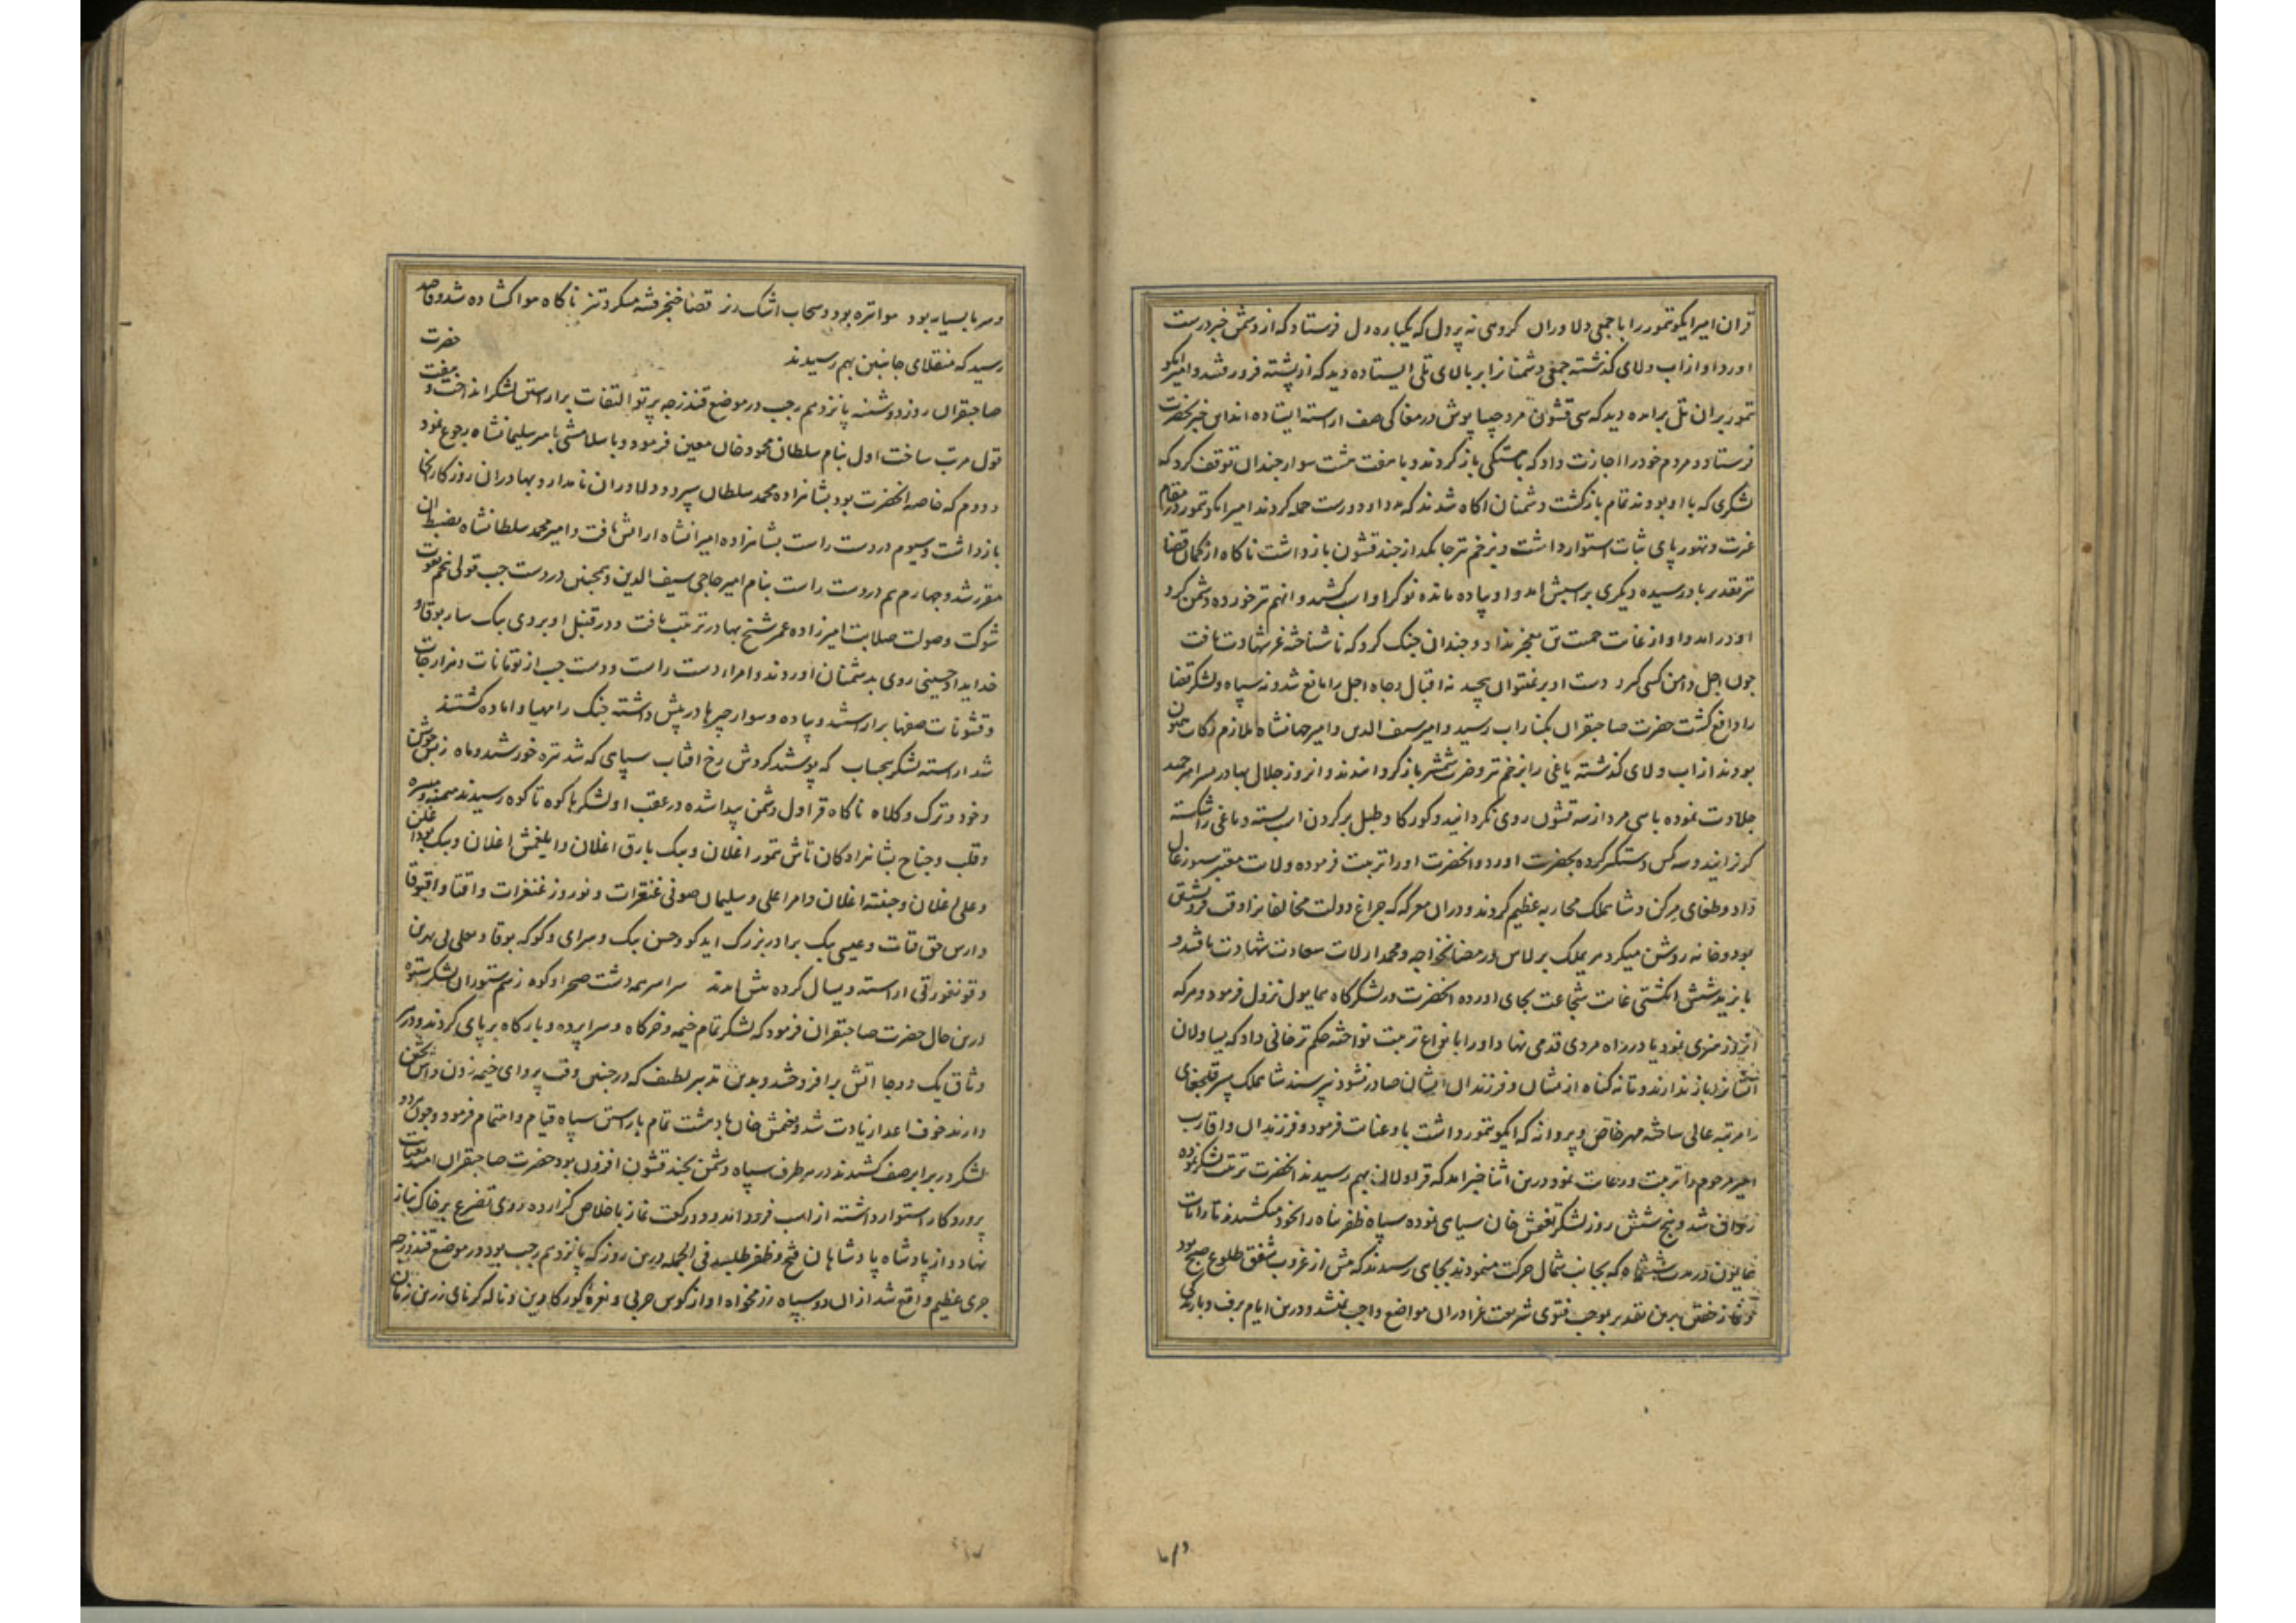 قران امیر ایکو تمور را با جمعی دلاوران کروهی نه پر دل که یکباره دل فرستاد که از دشمن خبر درست
اورد او از اب ولای کذشته جمعی دشمنانرا بر بالای تلی ایستاده دید که از پشته فرور فتند و امیر ایکو
تمور بران تل برامده دید که سی قشون مرد جیبا پوش در مغاکی صف اراسته ایستاده اند این خبر بحضرت
فرستاد و مردم خود را اجازت داد که باهستکی باز کردند و با هفت هشت سوار چندان توقف کرد که
لشکری که با او بودند تمام باز کشت دشمنان اکاه شدند که مدد او دورست حمله کردند امیر ایکو تمور در مقام
غیرت و تهور پای ثبات استوار داشت و بزخم تیر جانکداز چند قشون باز داشت ناکاه از کمان قضا
تیر تقدیر بادر سیده دیکری بر اسبش امد و او پیاده مانده نوکر او اسب کشید و انهم تیر خورده دشمن کرد
او درامد و او از غایت حمیت تن بعجز نداد و چندان جنک کرد که ناشناخته عز شهادت یافت
چون اجل دامن کسی کیرد دست او بر نمیتوان پیچید نه اقبال و جاه اجل را مانع شد و نه سپاه و لشکر قضا
را دافع کشت حضرت صاحبقران بکنار اب رسید و امیر سیف الدین و امیر جهانشاه ملازم رکاب همایون
بودند از اب ولای کذشته یاغی را بزخم تیر و ضرب شمشیر باز کردانیدند و انروز جلال بهادر پسر امیر حمید
جلادت نموده با سی مرد از سه قشون روی نکردانید و کورکا و طبل بر کردن اسب بسته و یاغی را شکسته
کریزانید و سه کس دستکیر کرده بحضرت اورد و انحضرت او را تربیت فرموده ولایت معتبر سیورغال
داد و طغای مرکن و شاهملک محاربه عظیم کردند و دران معرکه که چراغ دولت مخالفانرا وقت فرو نشستن
بود و خانه روشن میکرد هری ملک برلاس و رمضانخواجه و محمد ارلات سعادت شهادت یافتند و
بایزید شش انکشتی غایت شجاعت بجای اورده انحضرت در لشکرکاه همایون نزول فرمود و هر که
انروز هنری نمود یا در راه مردی قدمی نهاد او را بانواع تربیت نواخته حکم ترخانی داد که یساولان
ایشانرا باز ندارند و تا نه کناه از یشان و فرزندان ایشان صادر نشود نپرسند شاهملک پسر قلجغای
را مرتبه عالی ساخته مهر خاص و پروانه که ایکو تمور داشت باو عنایت فرمود و فرزندان و اقارب
امیر مرحوم را تربیت و رعایت نمود درین اثنا خبر امد که قراولان بهم رسیدند انحضرت ترتیب لشکر نموده
روان شد و پنج شش روز لشکر تقتمش خان سیاهی نموده سپاه ظفر پناه را بخود میکشیدند تا رایات
همایون در مدت شش ماه که بجانب شمال حرکت مینمودند بجای رسیدند که پیش از غروب شفق طلوع صبح بود
و نماز خفتن برین تقدیر بموجب فتوی شریعت غرا دران مواضع واجب نمیشد و درین ایام برف و بارندکی
و سرما بسیار بود هوا تیره بود و سحاب اشک ریز قضا خنجر فتنه میکرد تیز ناکاه هوا کشاده شد و قاصد
رسید که منقلای جانبین بهم رسیدند حضرت
صاحبقران روز دوشنبه پانزدهم رجب در موضع قندزجه پرتو التفات بر اراستن لشکر انداخت و هفت
قول مرتب ساخت اول بنام سلطان محمود خان معین فرمود و باسلامشی بامیر سلیمانشاه رجوع نمود
دووم که خاصه انحضرت بود بشاهزاده محمد سلطان سپرد و دلاوران نامدار و بهادران روزکار انجا
بازداشت و سیوم در دست راست بشاهزاده امیرانشاه ارایش یافت و امیر محمد سلطانشاه بضبط ان
مقرر شد و چهارم هم در دست راست بنام امیر حاجی سیف الدین و همچنین در دست چپ قولی پنجم بقوت
شوکت و صولت صلابت امیرزاده عمر شیخ بهادر ترتیب یافت و در قنبل او بردی بیک سار بوقا و
خدایداد حسینی روی بدشمنان اوردند و امراء دست راست و دست چپ از تومانات و هزارجات
و قشونات صفها بر اراستند و پیاده و سوار چپرها در پیش داشته جنک را مهیا و اماده کشتند
شد اراسته لشکر بیحساب که پوشید کردش رخ افتاب سپاهی که شد تیره خورشید و ماه ز بس جوشن
و خود و ترک و کلاه ناکاه قراول دشمن پیدا شده در عقب او لشکرها کوه تا کوه رسیدند میمنه و میسره
و قلب و جناح بشاهزادکان تاش تمور اغلان و بیک یارق اغلان و ایلیغمش اغلان و بیک بولاد اغلان
و علی اغلان و جنته اغلان و امرا علی و سلیمان صوفی قنقرات و نوروز قنقرات و اقتاو و اقبوقا
و ارس حق قیات و عیسی بیک برادر بزرک ایدکو و حسن بیک و سرای و کوکه بوقا و یغلی بی بهرین
و قونغوربی اراسته و یسال کرده پیش امدند سراسر همه دشت صحرا و کوه ز سم ستوران لشکر ستوه
درین حال حضرت صاحبقران فرمود که لشکر تمام خیمه و خرکاه و سراپرده و بارکاه بر پای کردند و در هر
وثاق یک دو جا اتش بر افروختند و بدین تدبیر لطیف که در چنین وقت پروای خیمه زدن و اش پختن
دارند خوف اعدا زیادت شد و تقتمش خان با دهشت تمام باراستن سپاه قیام و اهتمام فرمود و چون هر دو
لشکر در برابر صف کشیدند در هر طرف سپاه دشمن بچند قشون افزون بود حضرت صاحبقران امید بعنایت
پروردکار استوار داشته از اسب فرود امد و دو رکعت نماز باخلاص کزارده روی تضرع بر خاک نیاز
نهاد و از پادشاه پادشاهان فتح و ظفر طلبید فی الجمله درین روز که پانزدهم رجب بود در موضع قندزجه
حربی عظیم واقع شد از ان دو سپاه رزمخواه اواز کوس حربی و نعره کورکا وین و ناله کرنای زرین زمان